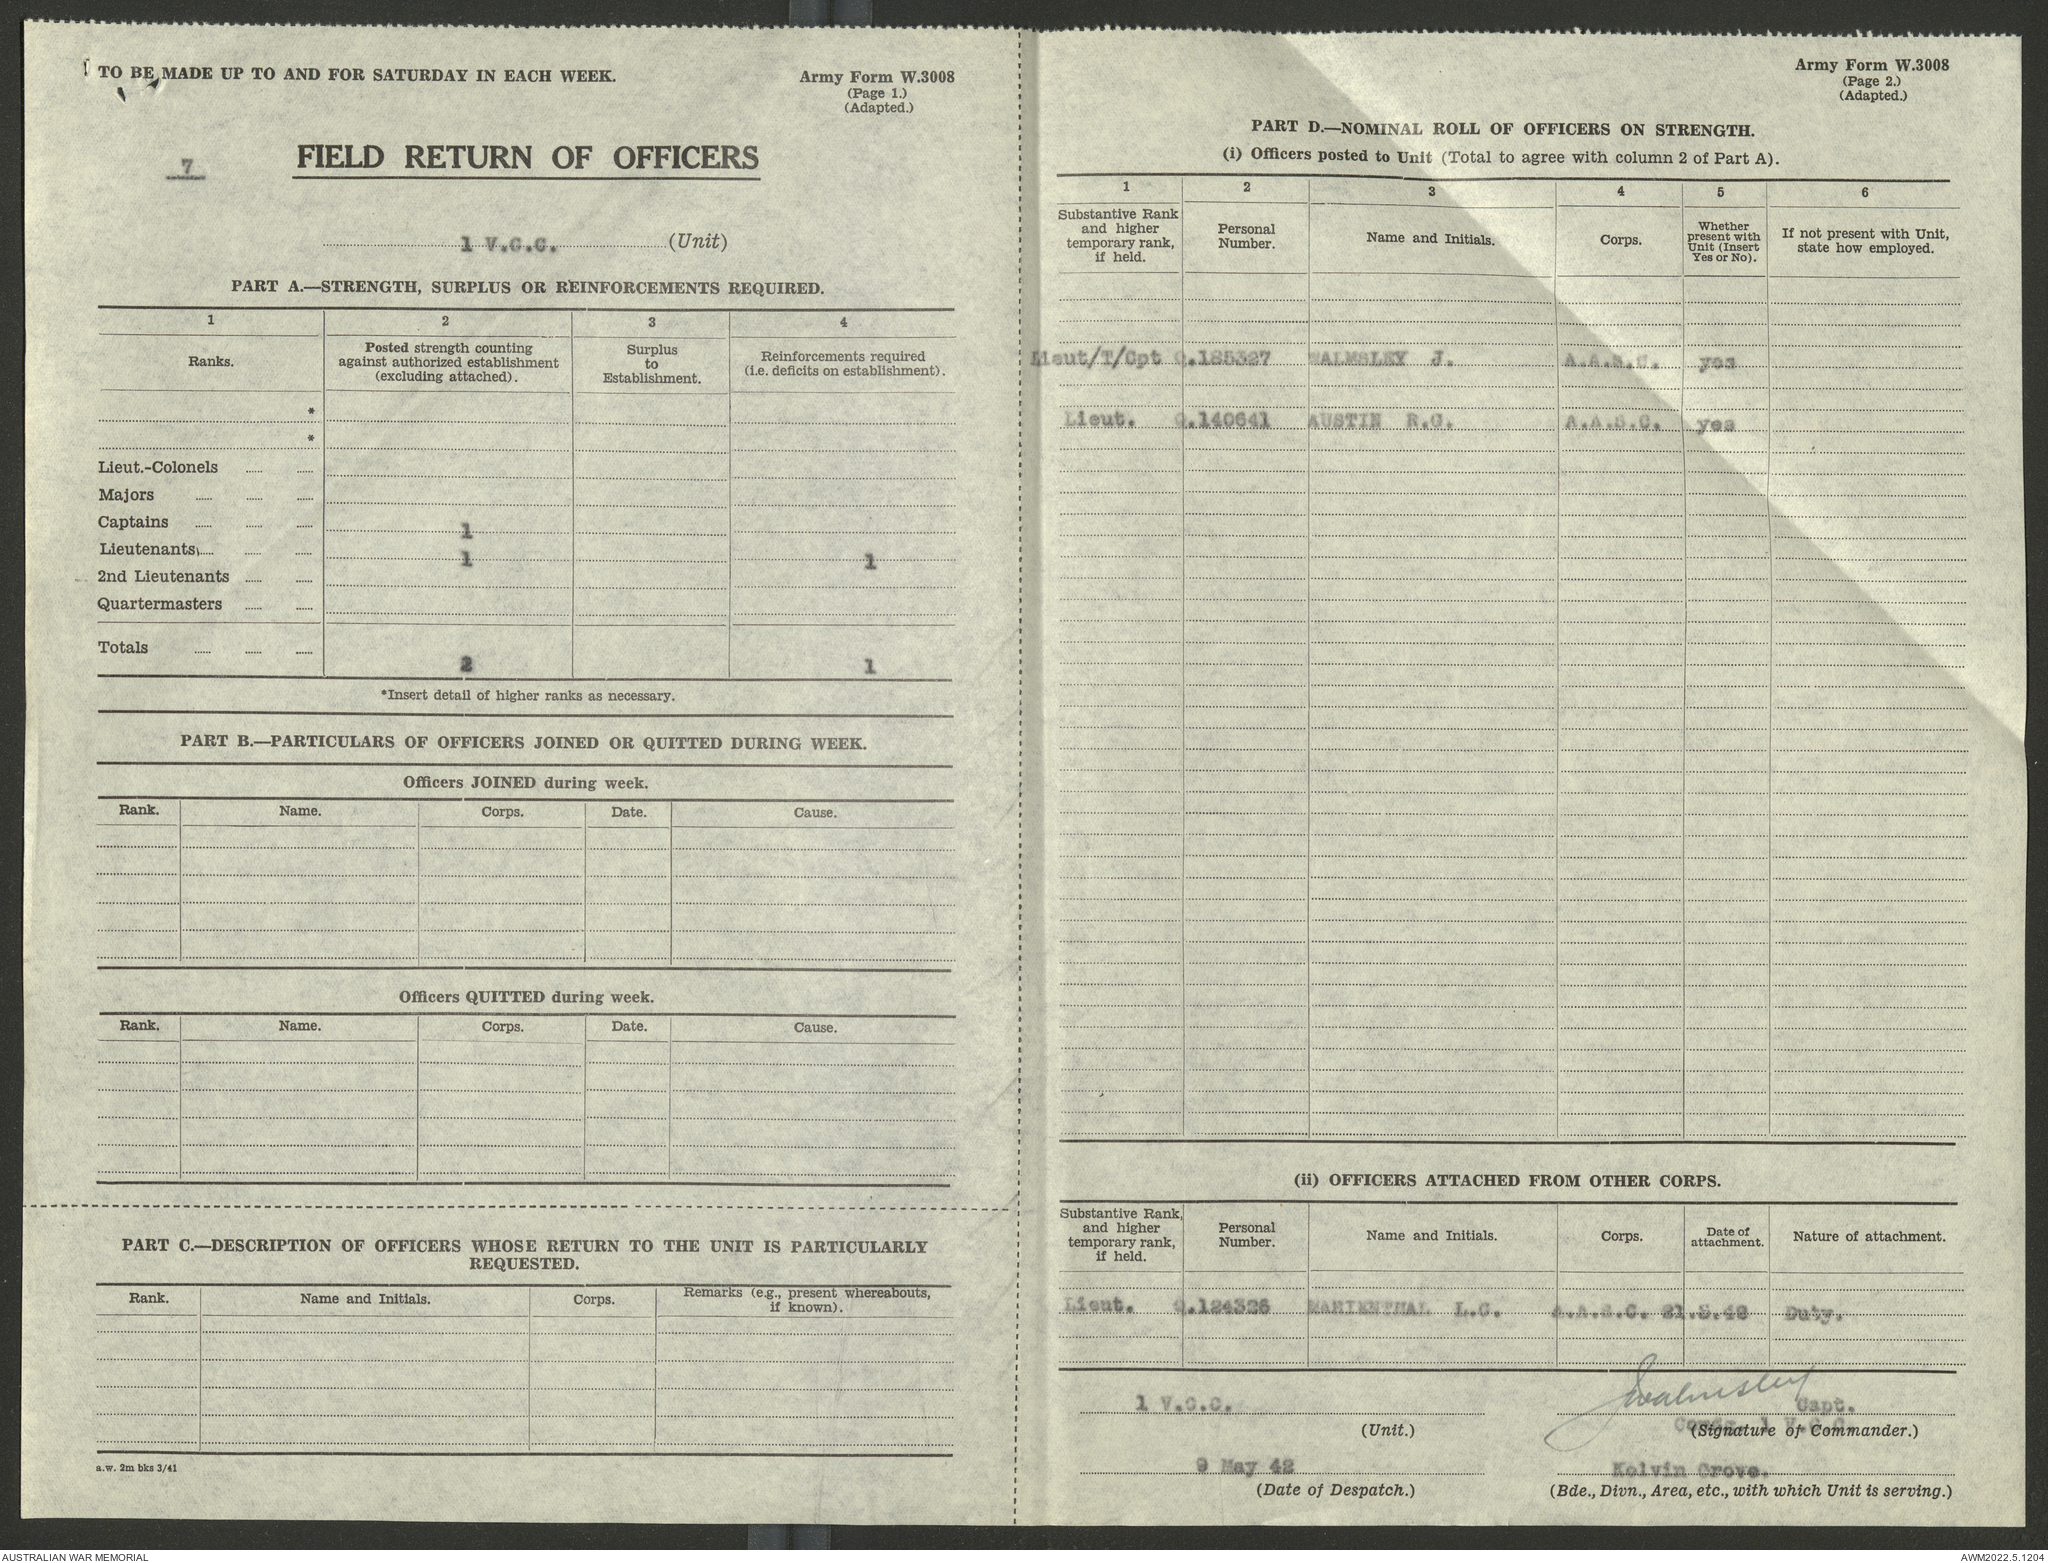 TO BE MADE UP TO AND FOR SATURDAY IN EACH WEEK.
Army Form W.3008
(Page 1.)
(Adapted.)
7
FIELD RETURN OF OFFICERS
1 V.C.C. (Unit)
PART A.—STRENGTH, SURPLUS OR REINFORCEMENTS REQUIRED.
1 2 3 4
Ranks. Posted strength counting against authorized establishment (excluding attached). Surplus to Establishment. Reinforcements required (i.e. deficits on establishment).
*
*
Lieut.-Colonels
Majors
Captains 1
Lieutenants 1 1
2nd Lieutenants
Quartermasters
Totals 2 1
*Insert detail of higher ranks as necessary.
PART B.—PARTICULARS OF OFFICERS JOINED OR QUITTED DURING WEEK.
Officers JOINED during week.
Rank. Name. Corps. Date. Cause.
Officers QUITTED during week.
Rank. Name. Corps. Date. Cause.
PART C.—DESCRIPTION OF OFFICERS WHOSE RETURN TO THE UNIT IS PARTICULARLY
REQUESTED.
Rank. Name and Initials. Corps. Remarks (e.g., present whereabouts, if known).
a.w. 2m bks 3/41
Army Form W.3008
(Page 2.)
(Adapted.)
PART D.—NOMINAL ROLL OF OFFICERS ON STRENGTH.
(i) Officers posted to Unit (Total to agree with column 2 of Part A).
1 2 3 4 5 6
Substantive Rank and higher temporary rank, if held. Personal Number. Name and Initials. Corps. Whether present with Unit (Insert Yes or No). If not present with Unit, state how employed.
Lieut/T/Cpt Q.125327 WALMSLEY J. A.A.S.C. yes
Lieut. Q.140641 AUSTIN R.G. A.A.S.C. yes
(ii) OFFICERS ATTACHED FROM OTHER CORPS.
Substantive Rank, and higher temporary rank, if held. Personal Number. Name and Initials. Corps. Date of attachment. Nature of attachment.
Lieut. Q.124326 MARIENTHAL L.G. A.A.S.C. 21.3.42 Duty.
1 V.C.C.
(Unit.)
JWalmsley Capt.
Comdg. 1 V.C.C.
(Signature of Commander.)
9 May 42
(Date of Despatch.)
Kelvin Grove.
(Bde., Divn., Area, etc., with which Unit is serving.)
AUSTRALIAN WAR MEMORIAL
AWM2022.5.1204